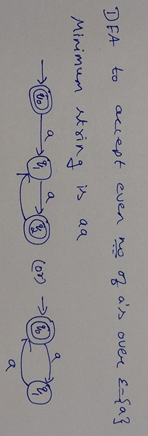 DFA to accept even no of a's over Σ={a}
Minimum string is aa
q0 a q1 a q2 (or) q0 a q1 a